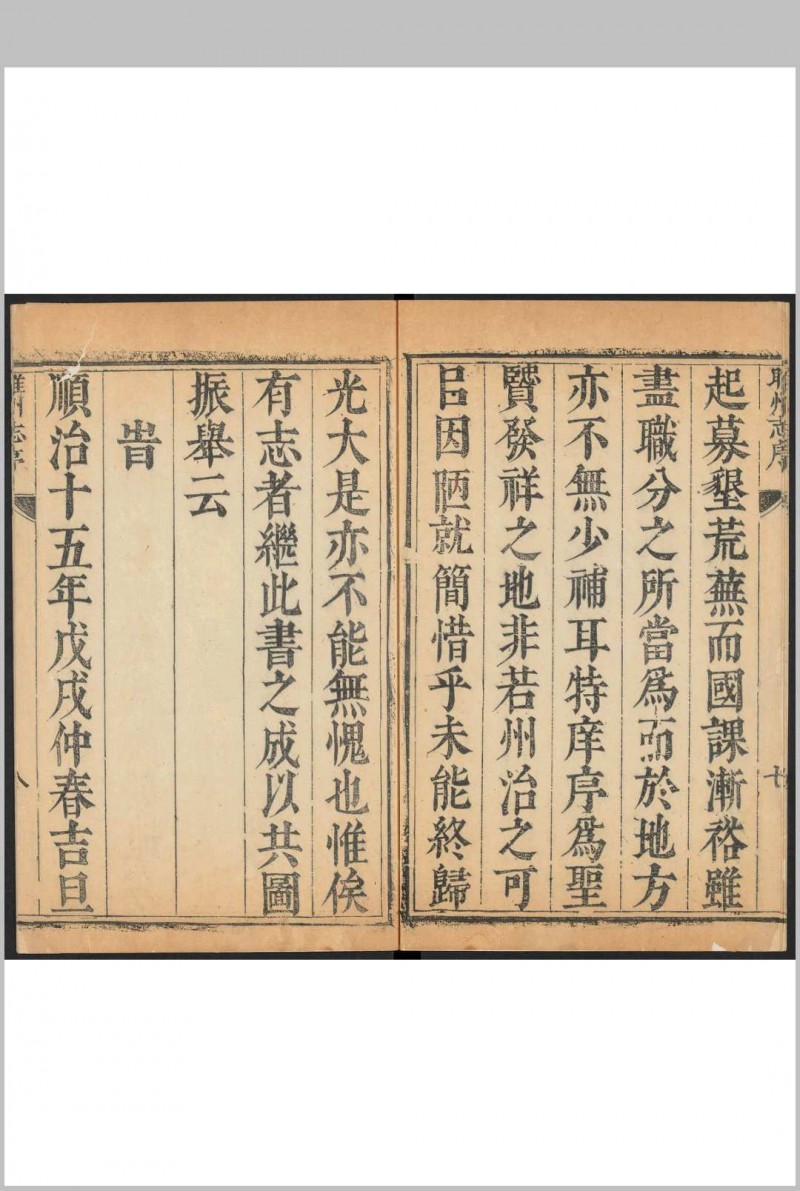 睢州志序
七
起募墾荒蕪而國課漸裕雖
盡職分之所當爲而於地方
亦不無少補耳特庠序爲聖
賢發祥之地非若州治之可
㠯因陋就簡惜乎未能終歸
光大是亦不能無愧也惟俟
有志者繼此書之成以共圖
振舉云
旹
順治十五年戊戌仲春吉旦
睢州志序
八